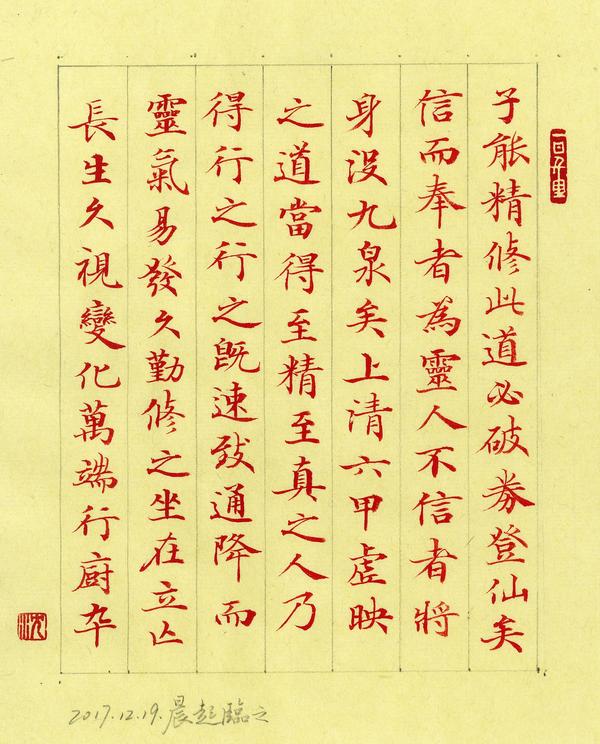 一日千里
子能精修此道必破券登仙矣
信而奉者為靈人不信者將
身没九泉矣上清六甲虛映
之道當得至精至真之人乃
得行之行之既速致通降而
靈氣易發久勤修之坐在立亡
長生久視變化萬端行廚卒
沈
2017.12.19.晨起臨之